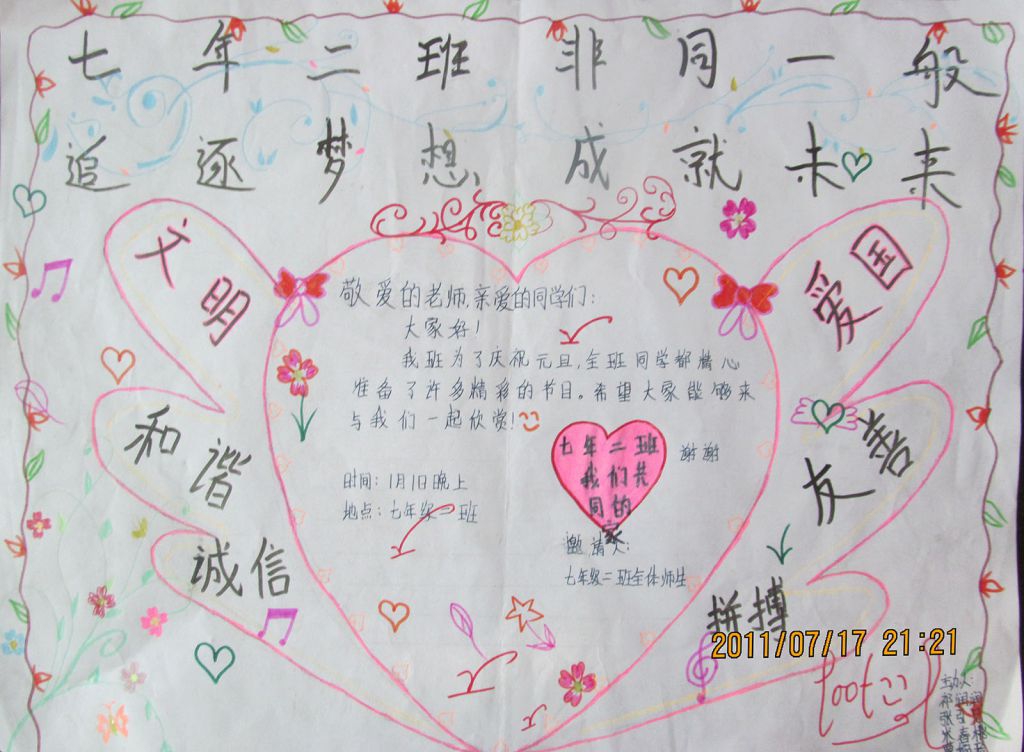 七年二班 非同一般
追逐梦想 成就未来
文明
爱国
敬爱的老师,亲爱的同学们:
大家好!
我班为了庆祝元旦,全班同学都精心
准备了许多精彩的节目。希望大家能够来
与我们一起欣赏!
和谐
友善
七年二班
我们共
同的
家
谢谢
时间:1月1日晚上
地点:七年级一班
邀请人:
七年级二班全体师生
诚信
拼搏
2011/07/17 21:21